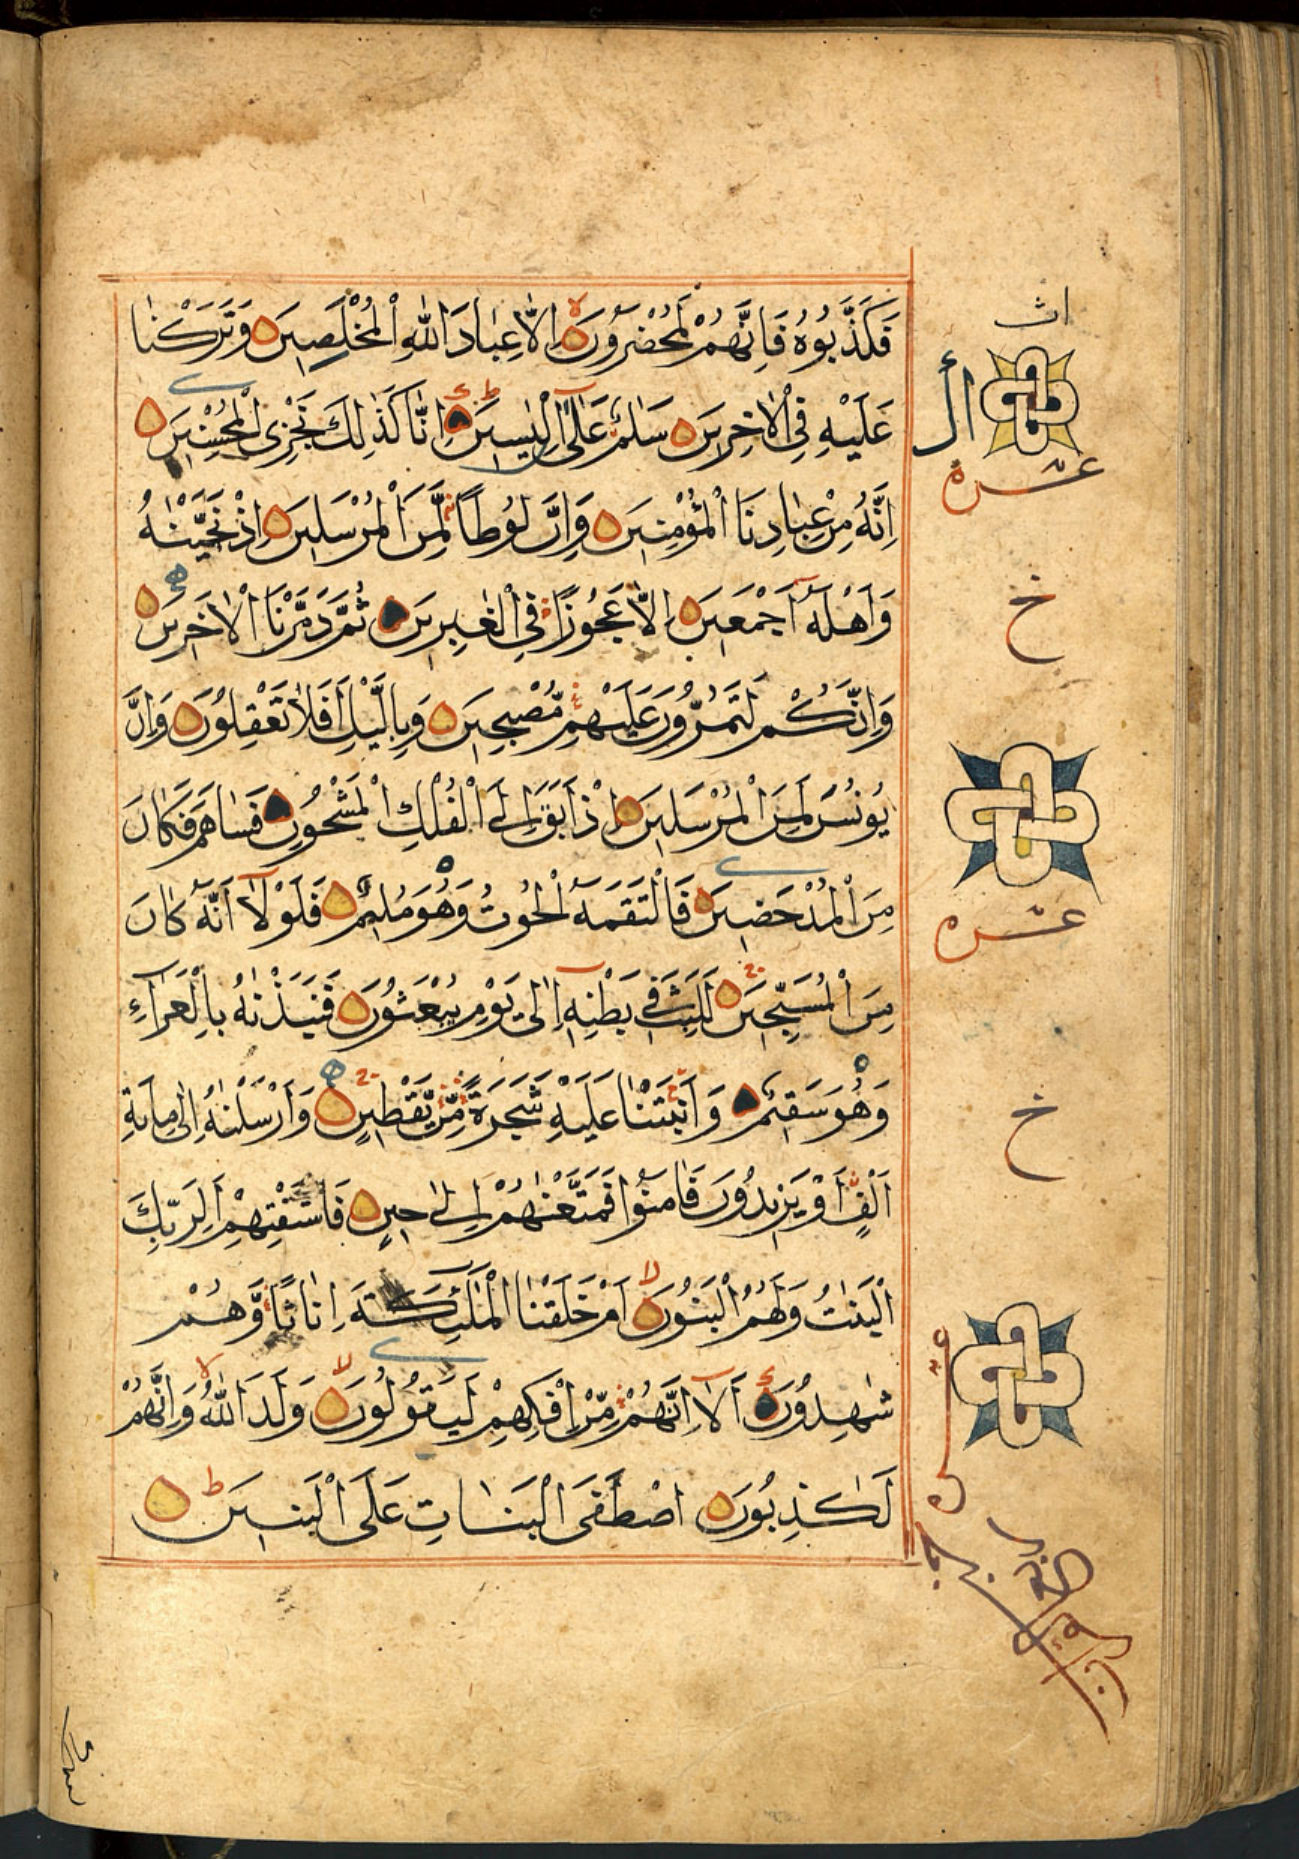 فَكَذَّبُوهُ فَاِنَّهُمْ لَمُحْضَرُونَ اِلَّا عِبَادَ اللّٰهِ الْمُخْلَصِينَ وَتَرَكْنَا
عَلَيْهِ فِي الْاٰخِرِينَ سَلٰمٌ عَلٰٓى اِلْ يَاسِينَ اِنَّا كَذٰلِكَ نَجْزِي الْمُحْسِنِينَ
اِنَّهُ مِنْ عِبَادِنَا الْمُؤْمِنِينَ وَاِنَّ لُوطًا لَّمِنَ الْمُرْسَلِينَ اِذْ نَجَّيْنٰهُ
وَاَهْلَهُ اَجْمَعِينَ اِلَّا عَجُوزًا فِي الْغٰبِرِينَ ثُمَّ دَمَّرْنَا الْاٰخَرِينَ
وَاِنَّكُمْ لَتَمُرُّونَ عَلَيْهِمْ مُّصْبِحِينَ وَبِالَّيْلِ اَفَلَا تَعْقِلُونَ وَاِنَّ
يُونُسَ لَمِنَ الْمُرْسَلِينَ اِذْ اَبَقَ اِلَى الْفُلْكِ الْمَشْحُونِ فَسَاهَمَ فَكَانَ
مِنَ الْمُدْحَضِينَ فَالْتَقَمَهُ الْحُوتُ وَهُوَ مُلِيمٌ فَلَوْلَآ اَنَّهُ كَانَ
مِنَ الْمُسَبِّحِينَ لَلَبِثَ فِي بَطْنِهِٓ اِلٰى يَوْمِ يُبْعَثُونَ فَنَبَذْنٰهُ بِالْعَرَآءِ
وَهُوَ سَقِيمٌ وَاَنْبَتْنَا عَلَيْهِ شَجَرَةً مِّنْ يَّقْطِينٍ وَاَرْسَلْنٰهُ اِلٰى مِايَةِ
اَلْفٍ اَوْ يَزِيدُونَ فَاٰمَنُوا فَمَتَّعْنٰهُمْ اِلٰى حِينٍ فَاسْتَفْتِهِمْ اَلِرَبِّكَ
الْبَنَاتُ وَلَهُمُ الْبَنُونَ اَمْ خَلَقْنَا الْمَلٰٓئِكَةَ اِنَاثًا وَّهُمْ
شٰهِدُونَ اَلَآ اِنَّهُمْ مِّنْ اِفْكِهِمْ لَيَقُولُونَ وَلَدَ اللّٰهُ وَاِنَّهُمْ
لَكٰذِبُونَ اصْطَفَى الْبَنَاتِ عَلَى الْبَنِينَ
اث
ال
عشره
خ
عشره
خ
عشره